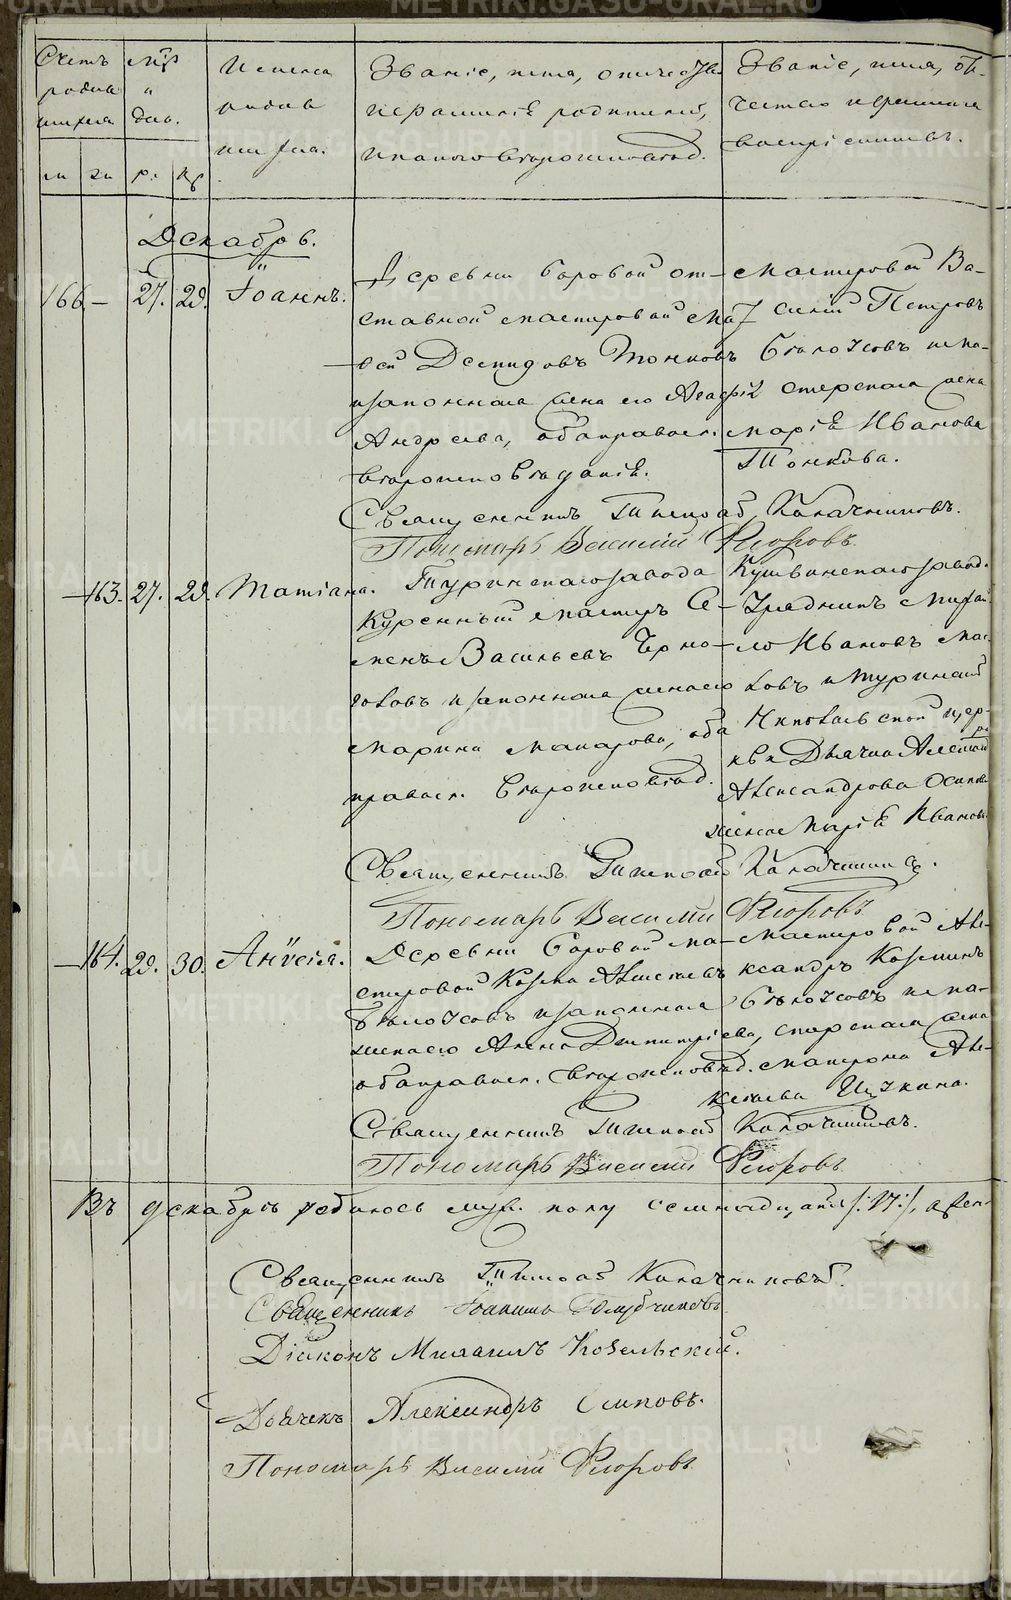 METRIKI.GASO-URAL.RU
Счетъ родившихся
Мцъ и день.
Имена родившихся.
Званіе, имя, отчество и фамилія родителей, и какого вѣроисповѣд.
Званіе, имя, отчество и фамилія воспріемниковъ.
м ж р. кр
Декабрь.
166 – 27. 29. Іоаннъ.
Деревни Боровой от-
ставной мастеровой Мат-
ѳей Демидовъ Тонковъ
и законная жена его Агафія
Андреева, оба православ.
вѣроисповѣданія.
Мастеровой Ва-
силій Петровъ
Бѣлоусовъ и ма-
стерскаго жена
Марія Иванова
Тонкова.
Священникъ Тимофей Калачниковъ.
Пономарь Василій Флоровъ
– 163. 27. 29. Татіана.
Туринскаго завода
Куренный мастеръ Се-
менъ Васильевъ Черно-
и законная жена его
Марина Макарова, оба
православ. вѣроисповѣд.
Кушвинскаго завод.
Урядникъ Михаи-
ло Ивановъ
и Туринской
Николаевской цер-
кви Дьячка Алексан
Александрова Осипова
жена Марія Иванов.
Священникъ Тимофей Калачников.
Пономарь Василій Флоровъ
– 164. 29. 30. Анисія.
Деревни Боровой ма-
стеровой Козма Алексѣевъ
Бѣлоусовъ и законная
жена его Анна Димитріева,
оба православ. вѣроисповѣд.
Мастеровой Але-
ксандръ Козминъ
Бѣлоусовъ и ма-
стерскаго жена
Матрона Але-
ксѣева
Священникъ Тимофей Калачниковъ.
Пономарь Василій Флоровъ
Въ декабрѣ родилось муж. полу семнадцать /:17:/, а жен
Священникъ Тимофей Калачниковъ.
Священникъ Іоаннъ Голубчиковъ
Діаконъ Михаилъ Ковельскій.
Дьячекъ Александръ Осиповъ.
Пономарь Василій Флоровъ